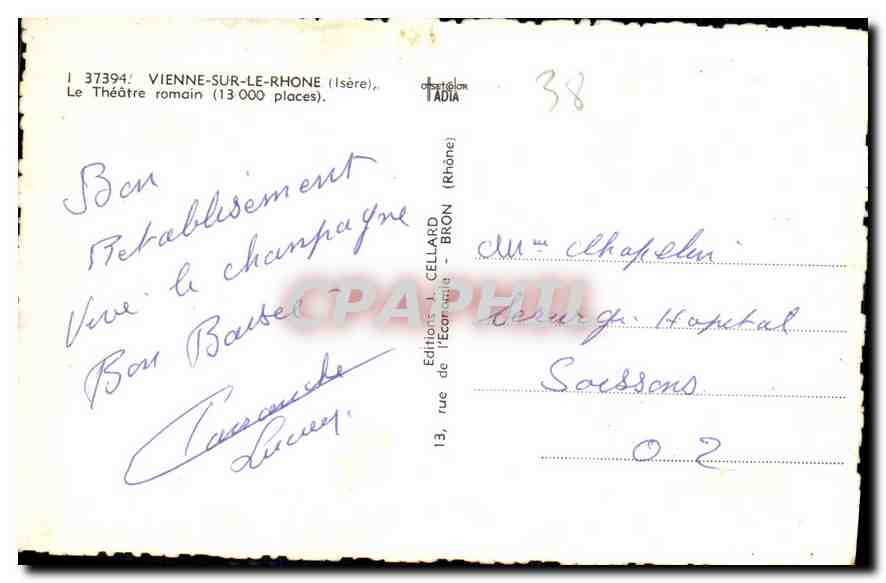 I 37394. VIENNE-SUR-LE-RHONE (Isère),
Le Théâtre romain (13 000 places).
offset color
ADIA
38
Bon
Retablisement
Vive le champagne
Bon Baiser
Lucien
Editions J. CELLARD
13, rue de l'Economie - BRON (Rhône)
CPAPHIL
Mme Chapelin
Hopital
Soissons
02